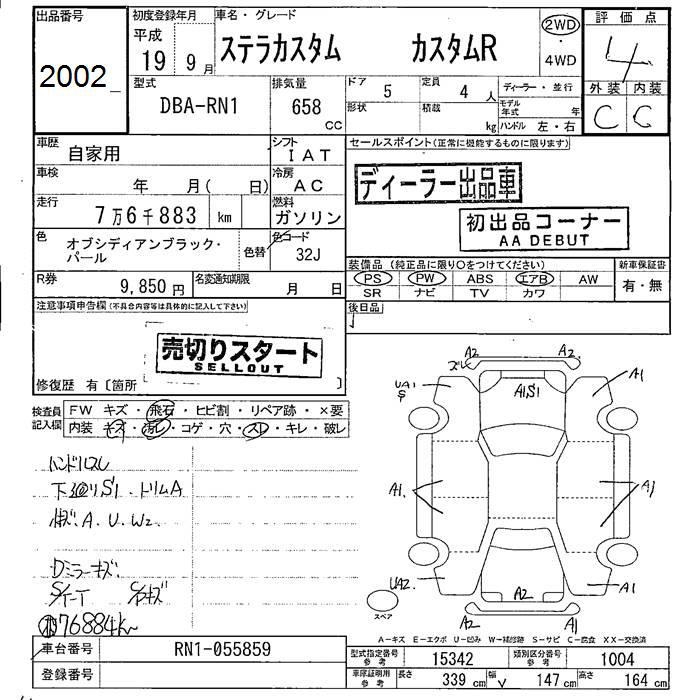 出品番号
2002
初度登録年月
平成
19年 9月
車名・グレード
ステラカスタム カスタムR
2WD
・
4WD
評価点
4
外装 内装
C C
型式
DBA-RN1
排気量
658
cc
ドア
5
定員
4 人
形状
積載
kg
ディーラー・並行
モデル年式 年
ハンドル 左・右
車歴
自家用
シフト
IAT
車検
年 月( 日)
冷房
AC
走行
7万6千883 km
燃料
ガソリン
色
オブシディアンブラック・
パール
色替
色コード
32J
R券
9,850 円
名変通知期限
月 日
セールスポイント(正常に機能するものに限ります)
ディーラー出品車
初出品コーナー
AA DEBUT
装備品(純正品に限り○をつけてください)
PS PW ABS エアB AW
SR ナビ TV カワ
新車保証書
有・無
後日品
注意事項申告欄(不具合内容等は具体的に記入して下さい)
売切りスタート
SELLOUT
修復歴 有〔箇所 〕
検査員
記入欄
FW キズ・飛石・ヒビ割・リペア跡・×要
内装 キズ・汚レ・コゲ・穴・スレ・キレ・破レ
ハンドルスレ
下廻りS1.トリムA
A.U.W2
Dミラーキズ
76884k
A2 A2
ズレ
UA1
S
A1S1
A1
A1.
A1
UA2.
A2
A1
A2
A1
スペア
A-キズ E-エクボ U-凹み W-補修跡 S-サビ C-腐食 XX-交換済
車台番号
RN1-055859
登録番号
型式指定番号
参考
15342
類別区分番号
参考
1004
車庫証明用
参考
長さ
339 cm
幅
147 cm
高さ
164 cm